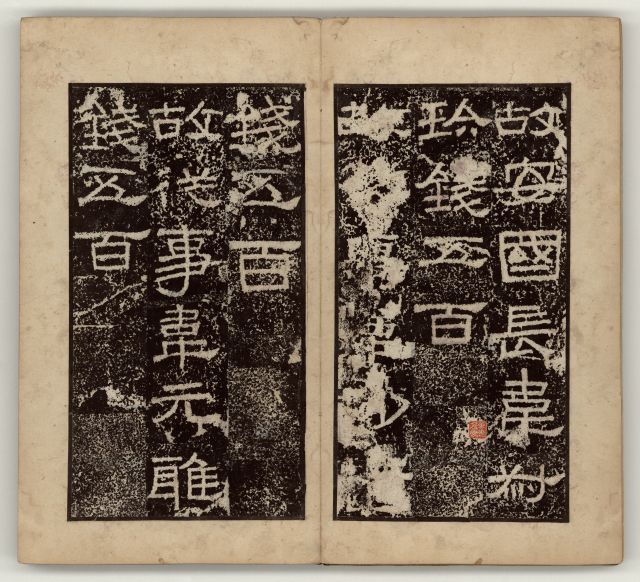 故安國長韋叔
珍錢五百
故從事韋
錢五百
故從事韋元雅
錢五百